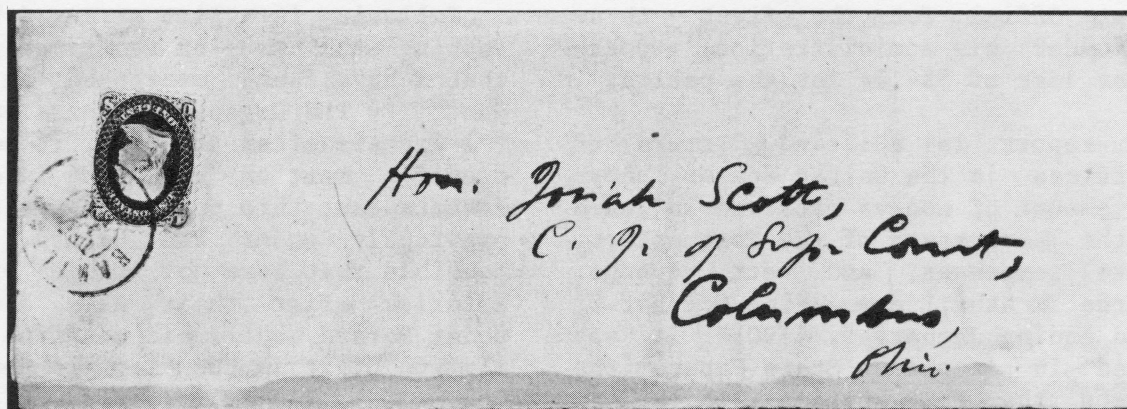 Hon. Josiah Scott,
C. J. of Supr Court,
Columbus,
Ohio.